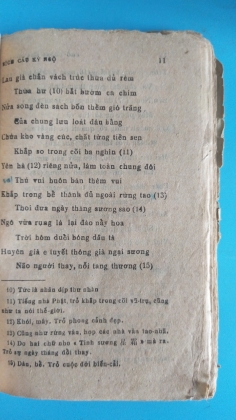 NGỌC CÁC KỲ NGỘ 11
Lau già chắn vách trúc thưa đủ rèm
Thừa hư (10) bãi bướm ca chim
Nửa song đèn sách bốn thềm gió trăng
Của chung lưu loát dân bằng
Chứa kho vàng cúc, chất từng tiền sen
Khắp so trong cõi ha nghìn (11)
Yên hà (12) riêng nửa, lâm toàn chung đôi
Thú vui buôn bán thêm vui
Khắp trong bể thánh đủ ngoài rừng tao (13)
Thoi đưa ngày tháng sương sao (14)
Ngô vừa rụng lá lại đào nẩy hoa
Trời hôm đuổi bóng dâu tà
Huyên già e tuyết thông già ngại sương
Não người thay, nỗi tang thương (15)
10) Tức là nhân dịp thư nhàn
11) Tiếng nhà Phật, trỏ khắp trong cõi vũ-trụ, cũng
như ta nói thế-giới.
12) Khói, mây. Trỏ phong cảnh đẹp.
13) Cũng như rừng văn, họp các nhà văn tao-nhã.
14) Do hai chữ « Tinh sương 星霜 » mà ra.
Trỏ sự ngày tháng đắp thay.
15) Dâu, bể. Trỏ cuộc đời biến-cải.